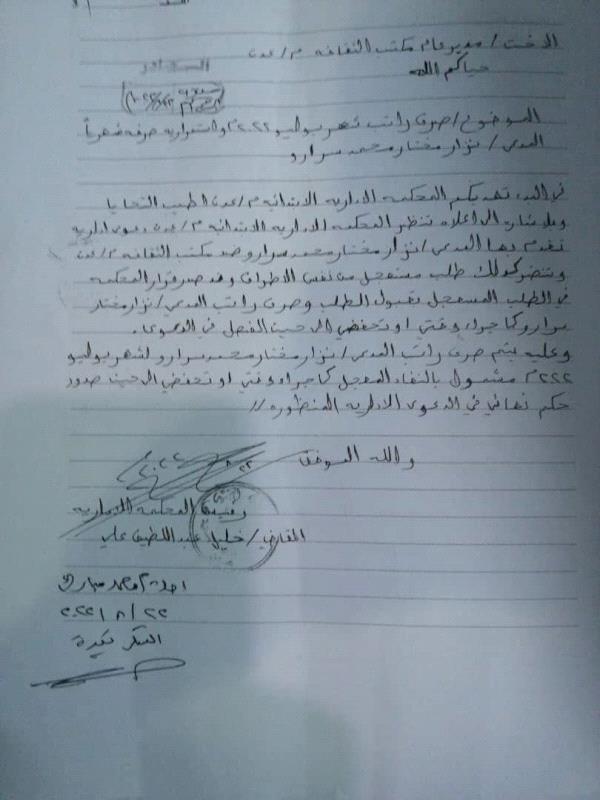 الاخت / مدير عام مكتب الثقافه م/عدن
حياكم الله
الموضوع / صرف راتب شهر يوليو ٢٠٢٢م واستمراريه صرفه شهرياً
المدعي / نزار مختار محمد سرارو
في البدء تهديكم المحكمه الاداريه الابتدائيه م/عدن اطيب التحايا
وبالاشاره الى اعلاه تنظر المحكمه الاداريه الابتدائيه م/عدن دعوى اداريه
تقدم بها المدعي / نزار مختار محمد سرارو ضد مكتب الثقافه م/عدن
وتنظر كذلك طلب مستعجل من نفس الاطراف وقد صدر قرار المحكمه
في الطلب المستعجل بقبول الطلب وصرف راتب المدعي / نزار مختار
سرارو كاجراء وقتي او تحفضي الى حين الفصل في الدعوى.
وعليه يتم صرف راتب المدعي / نزار مختار محمد سرارو لشهر يوليو
٢٠٢٢م مشمول بالنفاذ المعجل كاجراء وقتي او تحفضي الى حين صدور
حكم نهائي في الدعوى الاداريه المنظوره //
والله الموفق
رئيس المحكمه الاداريه
القاضي / خليل عبد اللطيف علي
محمد
٢٠٢٢/٨/٢٢